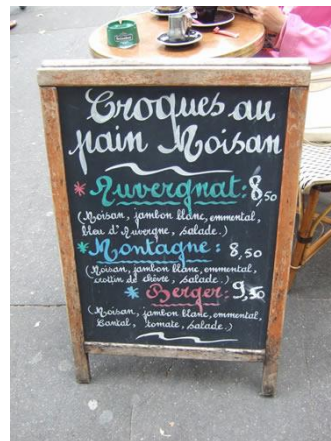 Croques au
pain Moisan
* Auvergnat: 8,50
(Moisan, jambon blanc, emmental,
bleu d'Auvergne, salade.)
* Montagne: 8,50
(Moisan, jambon blanc, emmental,
crottin de chèvre, salade.)
* Berger: 9,50
(Moisan, jambon blanc, emmental,
Cantal, tomate, salade.)